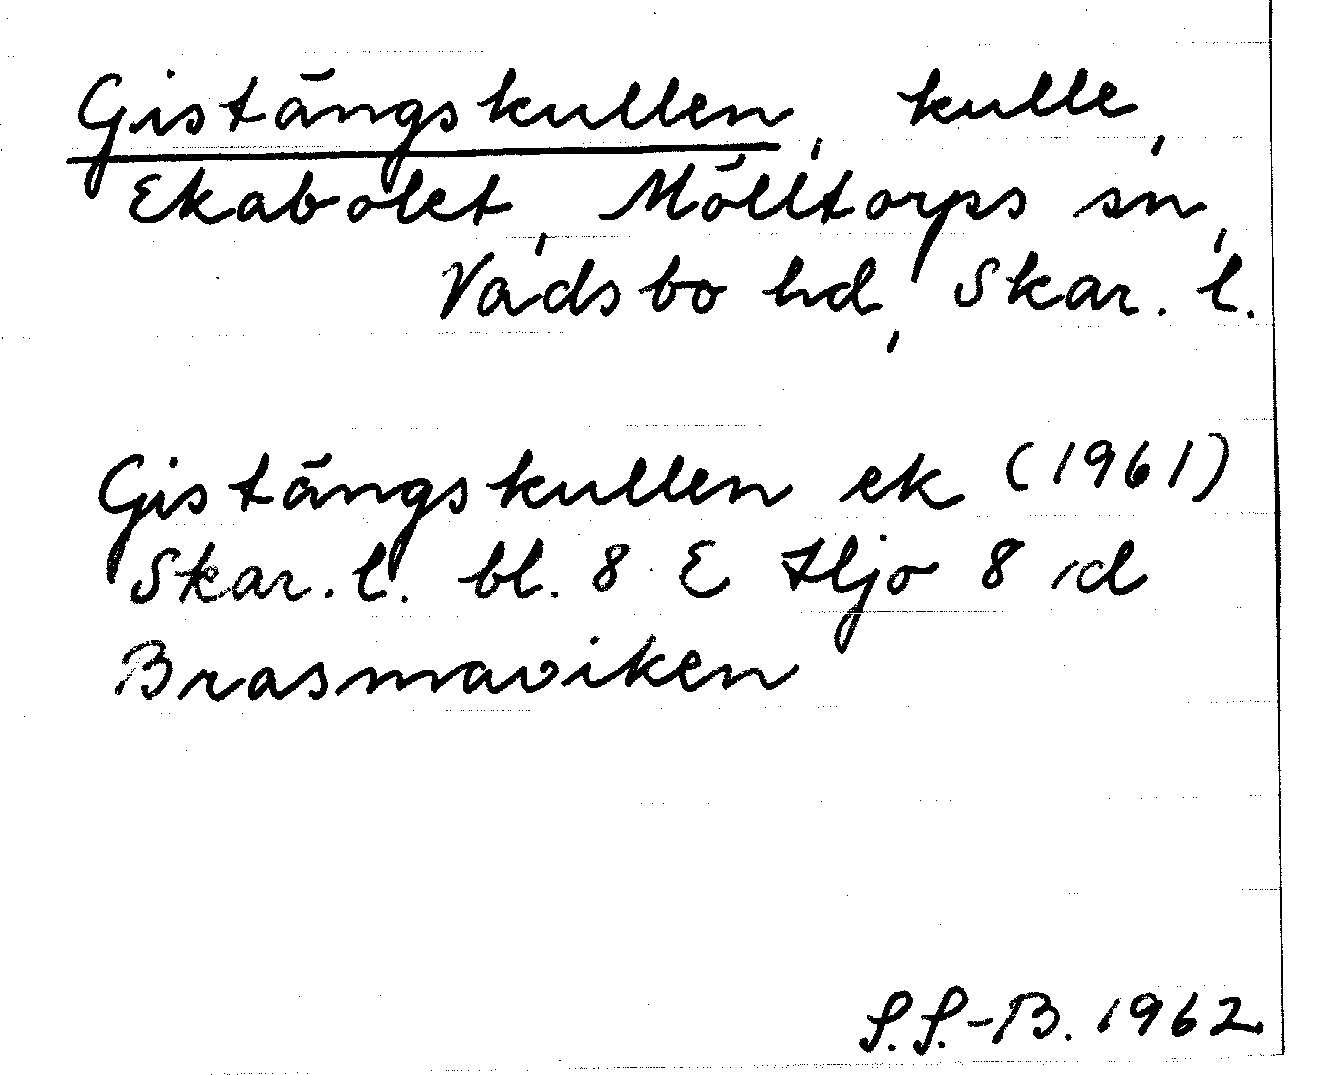 Gistängskullen, kulle,
Ekabolet, Mölltorps sn,
Vadsbo hd, Skar. l.
Gistängskullen ek (1961)
Skar. l. bl. 8 E Hjo 8 d
Brasmaviken
S.S.-B. 1962.